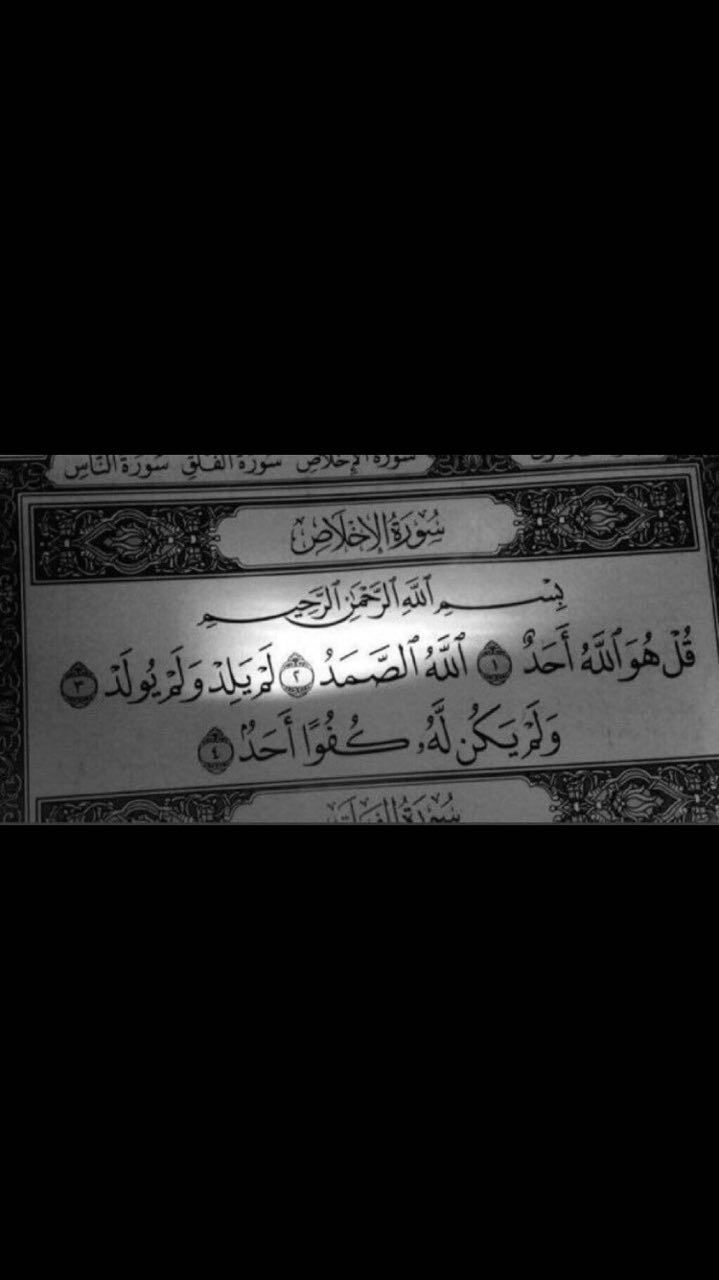 سورة الإخلاص سورة الفلق سورة الناس
سُورَةُ الإِخْلَاصِ
بِسْمِ ٱللَّهِ ٱلرَّحْمَٰنِ ٱلرَّحِيمِ
قُلْ هُوَ ٱللَّهُ أَحَدٌ ١ ٱللَّهُ ٱلصَّمَدُ ٢ لَمْ يَلِدْ وَلَمْ يُولَدْ ٣
وَلَمْ يَكُن لَّهُۥ كُفُوًا أَحَدٌۢ ٤
سُورَةُ